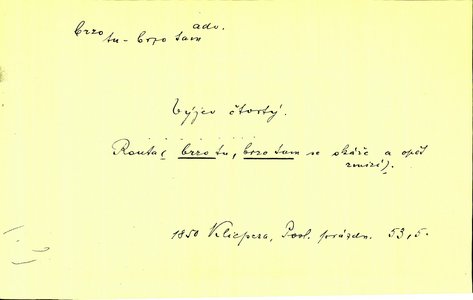 brzo adv.
tu - brzo tam
Výjev čtvrtý.
Routa( brzo tu, brzo tam se ukáže a opět
zmizí).
1850 Klicpera, Posl. prázdn. 53,5.